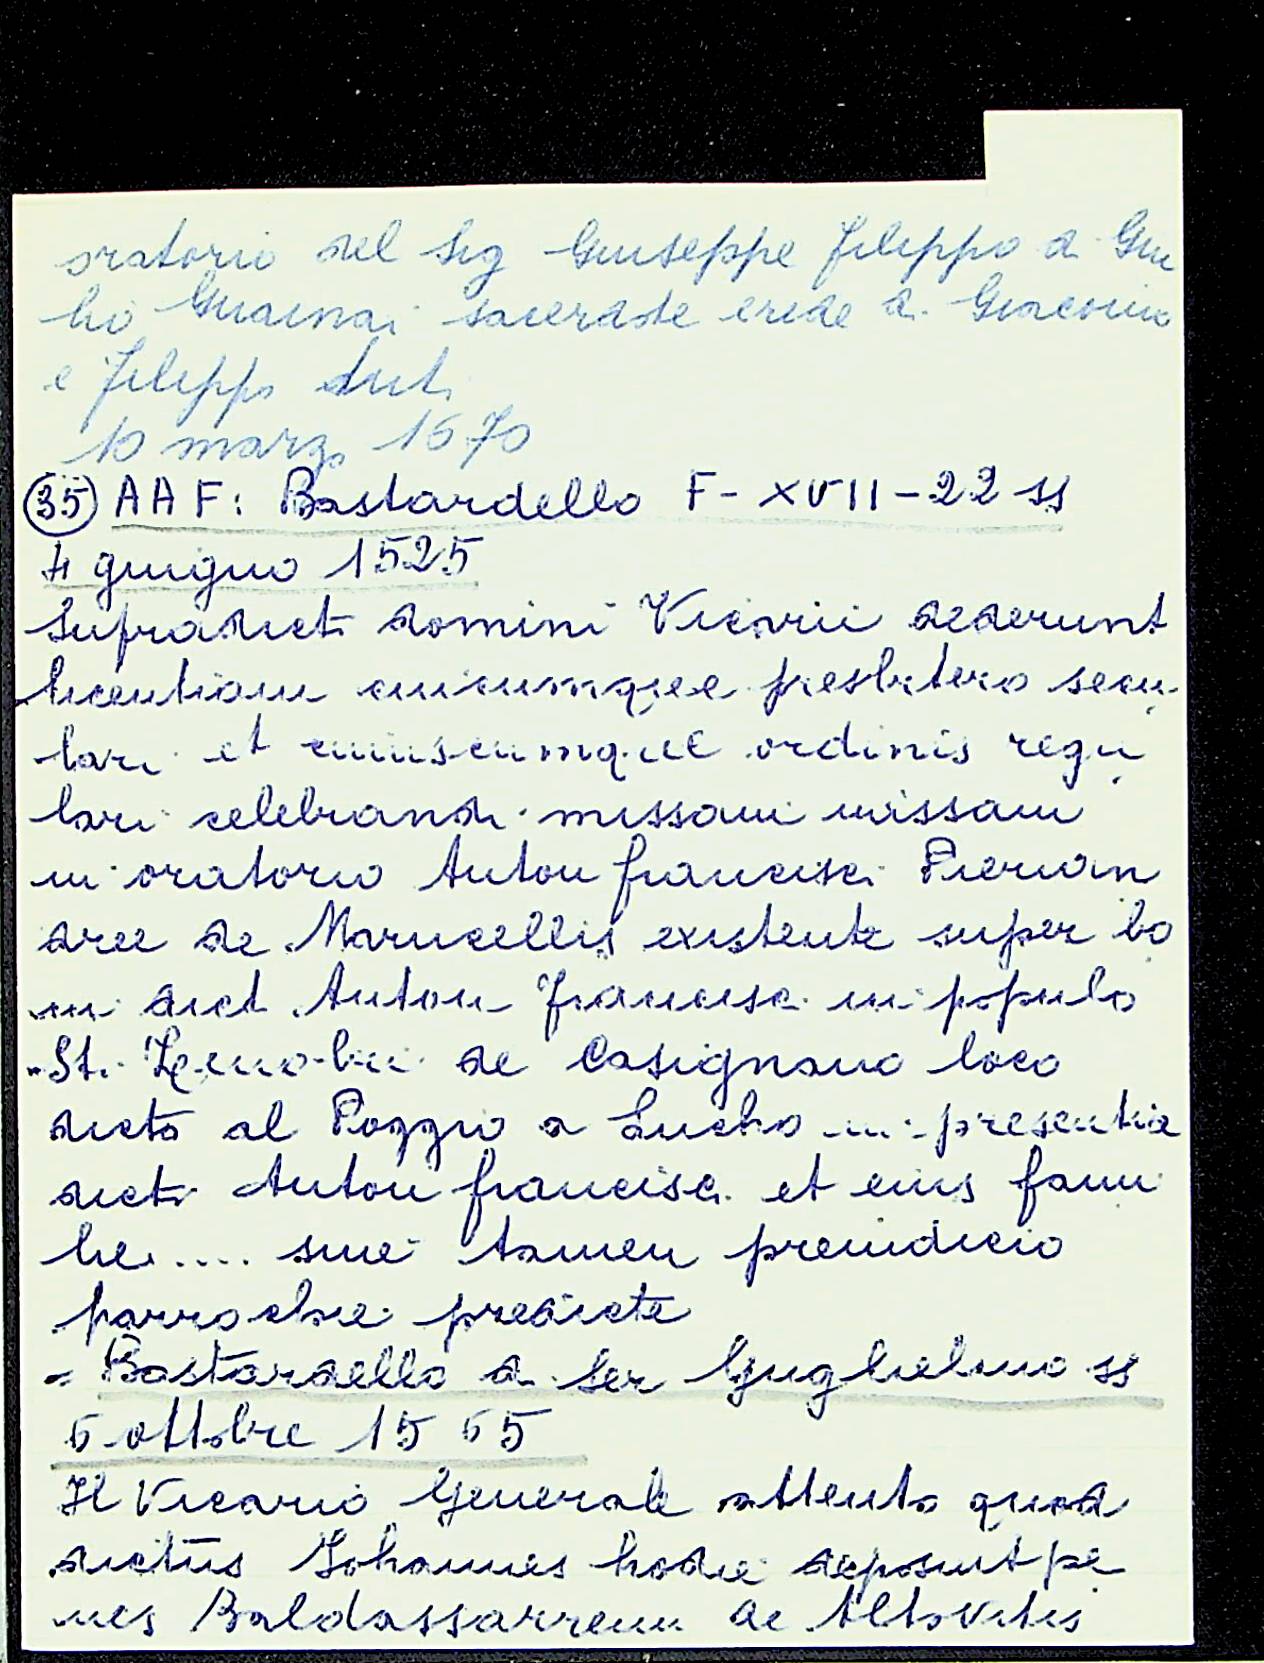 oratorio del Sig Giuseppe Filippo d. Giu
lio Guainai sacerdote erede d. Giacomo
e Filippo
10 marzo 1670
(35) AAF: Bastardello F - XVII - 22 ss
4 giugno 1525
Supradicti domini Vicarii dederunt
licentiam cuicumque presbitero secu
lari et cuiuscumque ordinis regu
lari celebrandi missam missam
in oratorio Anton Francisci Pierian
dree de Marucellis existente super bo
nis dicti Anton Francisci in populo
St. Zenobii de Casignano loco
dicto al Poggio a Lucho in presentia
dicti Anton Francisci et eius fami
lie .... sine tamen preiudicio
parrochie predicte
= Bastardello d. Ser Guglielmo ss
5 ottobre 1555
Il Vicario Generale attento quod
dictus Johannes hodie deposuit pe
nes Baldassarrem de Altovitis